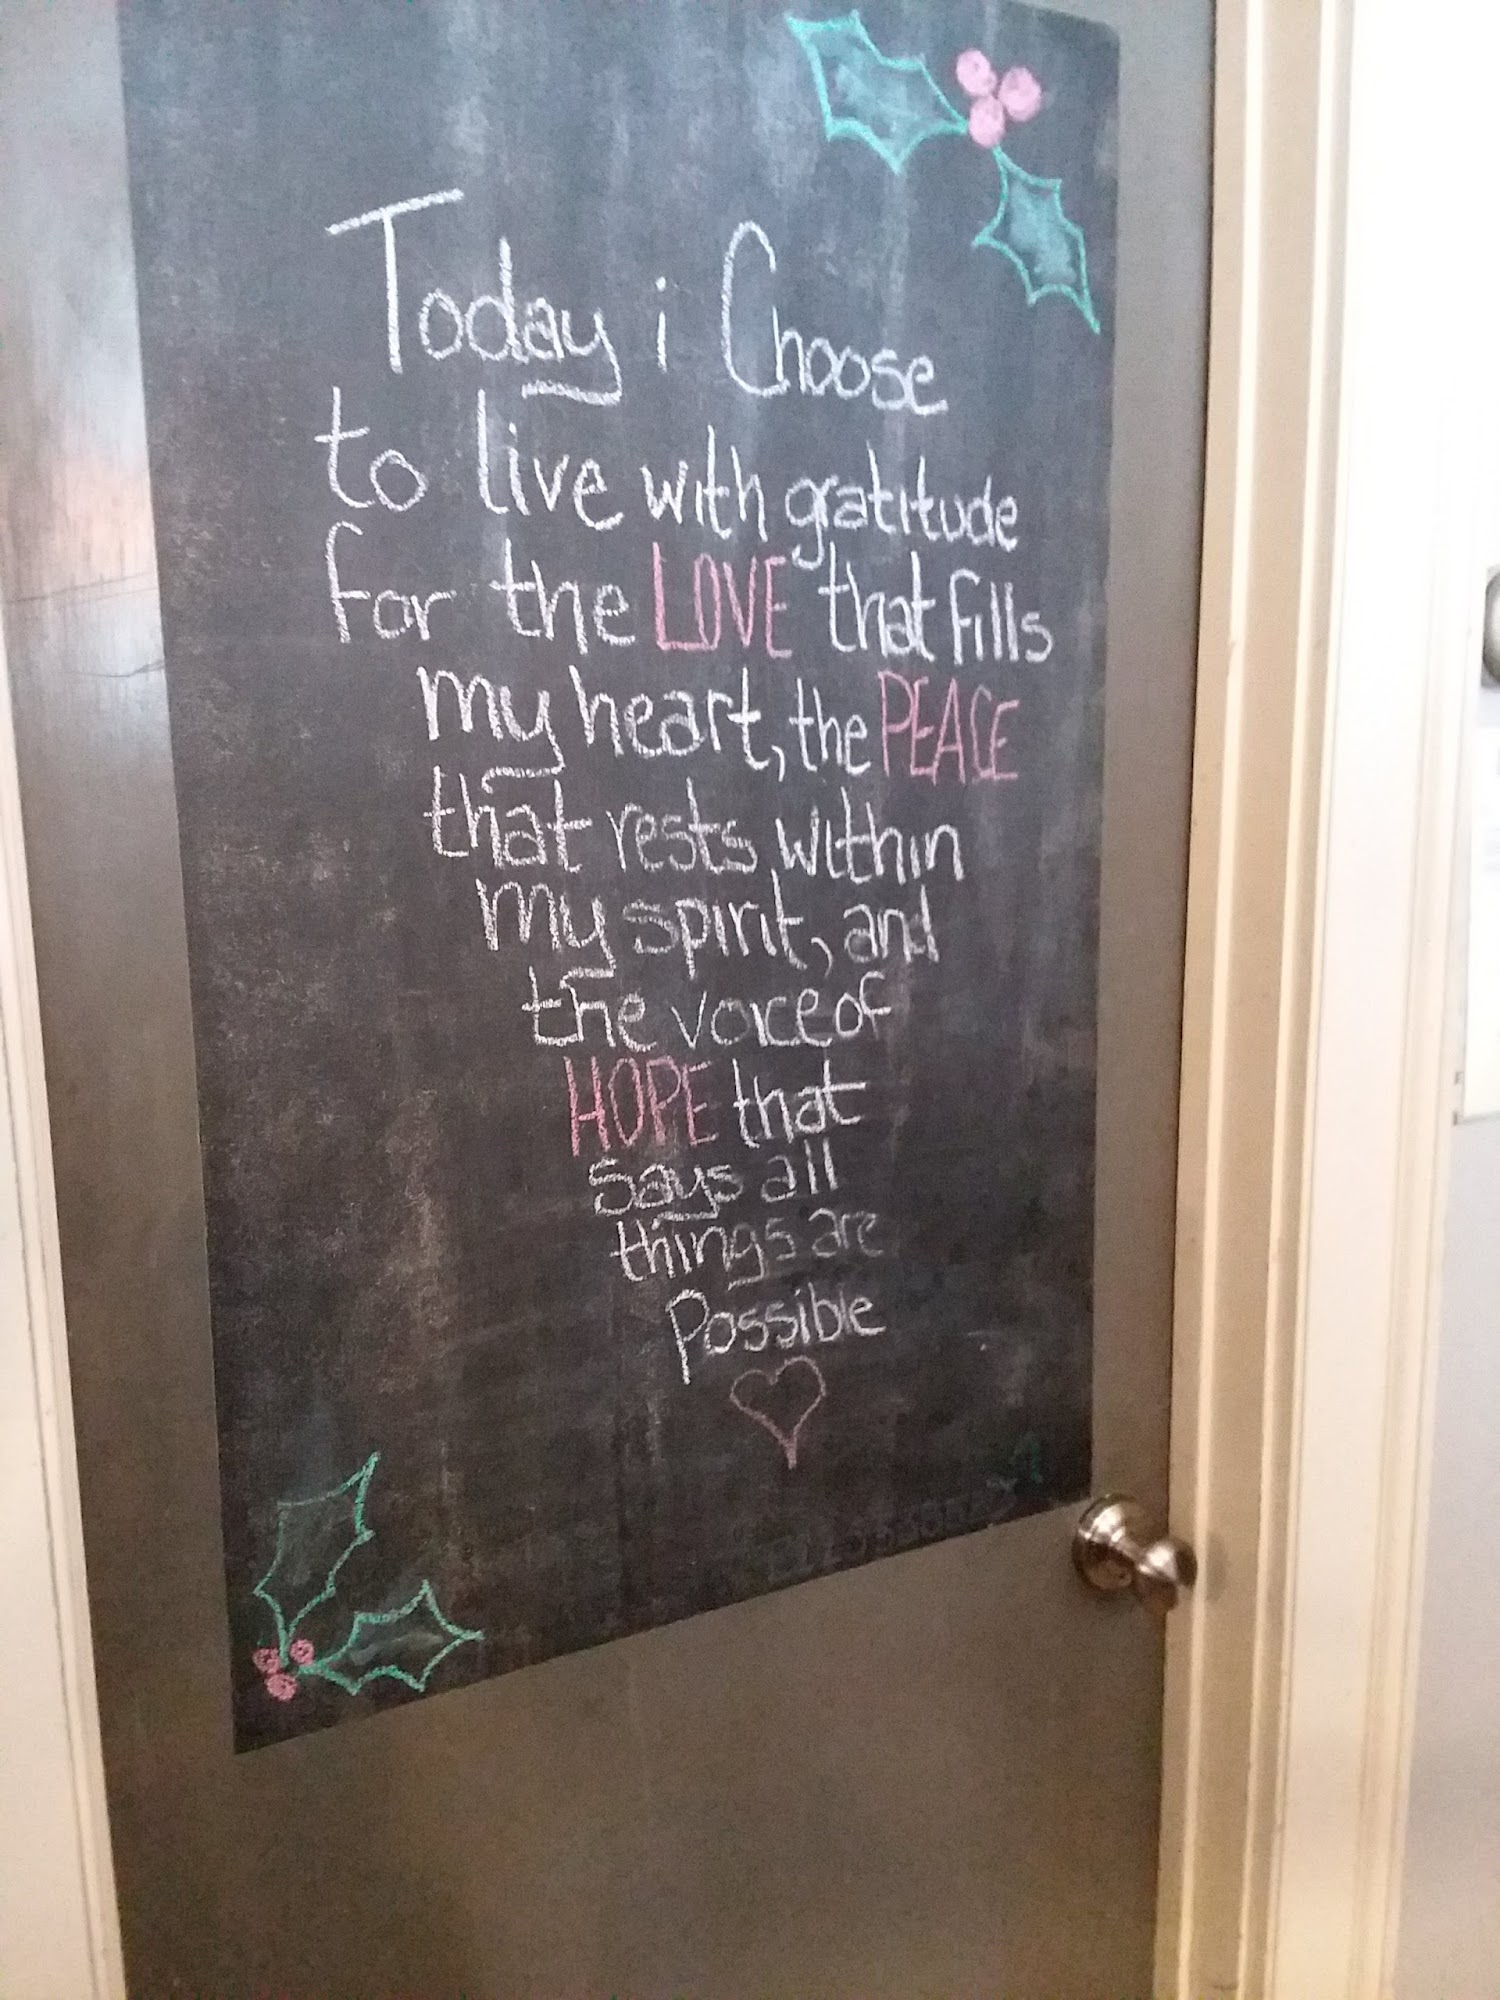 Today i Choose
to live with gratitude
for the LOVE that fills
my heart, the PEACE
that rests within
my spirit, and
the voice of
HOPE that
says all
things are
Possible